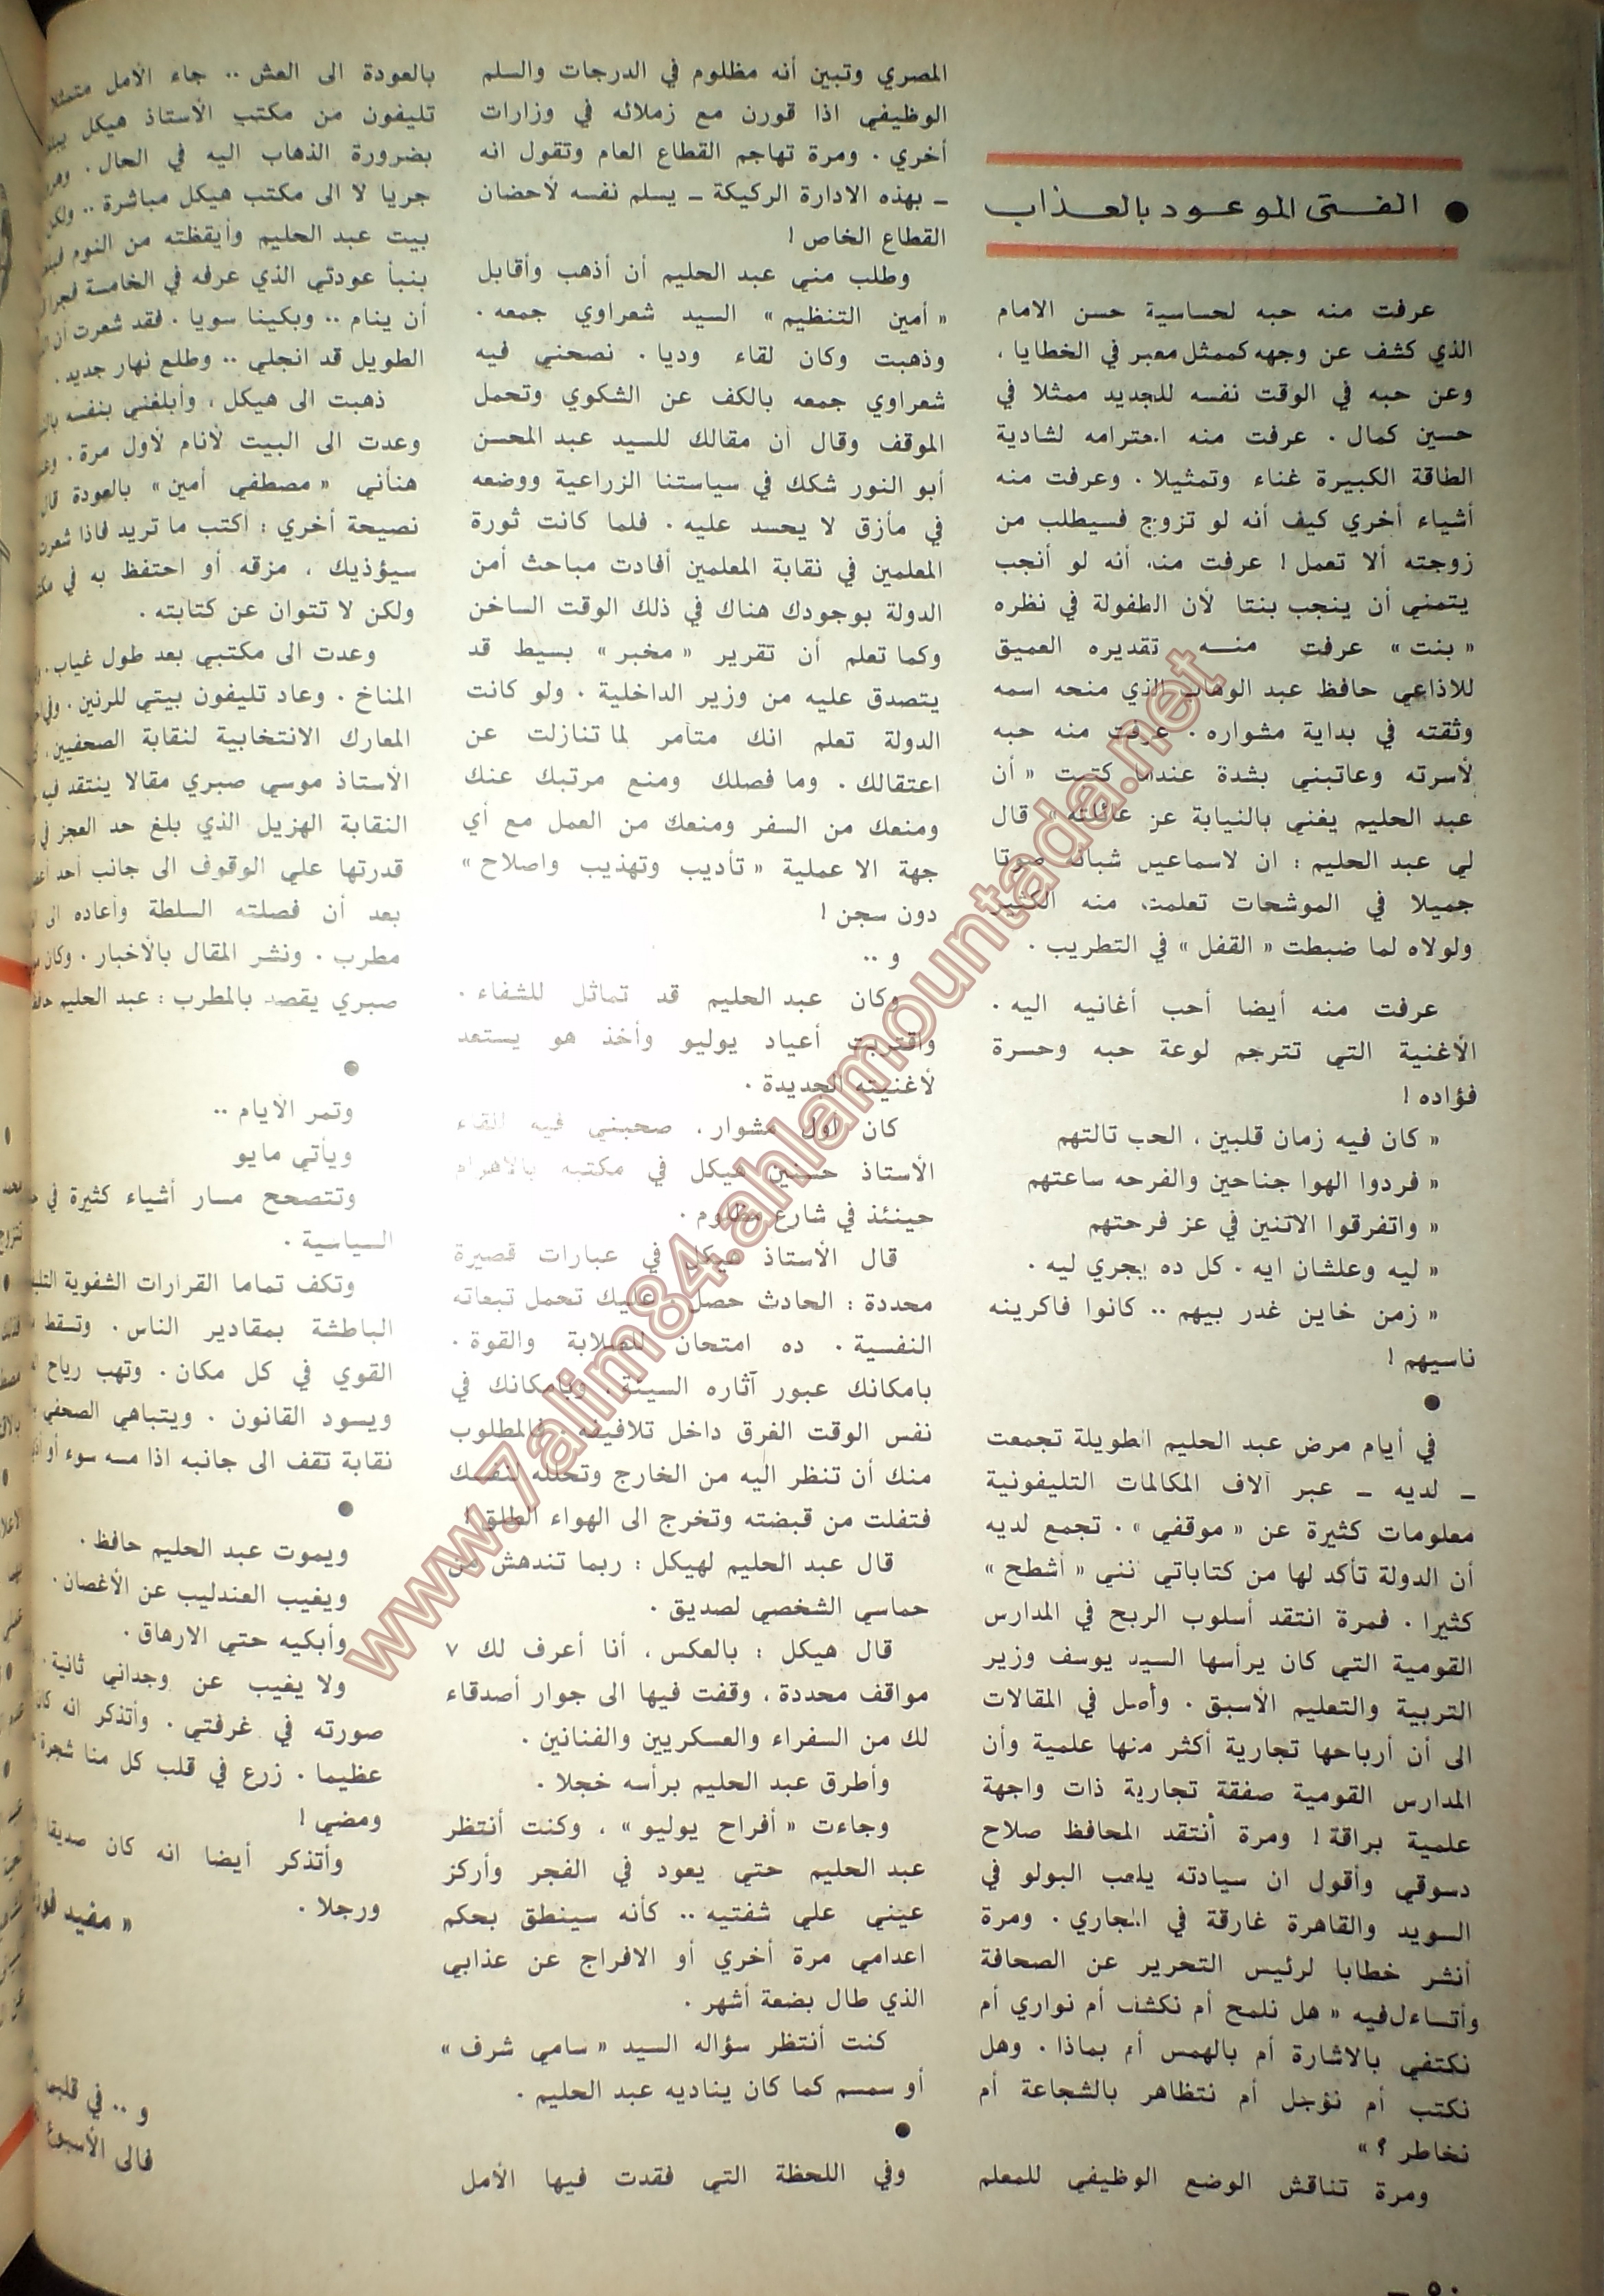 ● الفتى الموعود بالعذاب
عرفت منه حبه لحساسية حسن الامام
الذي كشف عن وجهه كممثل معبر في الخطايا ،
وعن حبه في الوقت نفسه للجديد ممثلا في
حسين كمال . عرفت منه احترامه لشادية
الطاقة الكبيرة غناء وتمثيلا . وعرفت منه
أشياء أخري كيف أنه لو تزوج فسيطلب من
زوجته ألا تعمل ! عرفت منه أنه لو أنجب
يتمني أن ينجب بنتا لأن الطفولة في نظره
« بنت » عرفت منه تقديره العميق
للاذاعي حافظ عبد الوهاب الذي منحه اسمه
وثقته في بداية مشواره . عرفت منه حبه
لأسرته وعاتبني بشدة عندما كتبت « أن
عبد الحليم يغني بالنيابة عن عائلته » قال
لي عبد الحليم : ان لاسماعيل شبانه صوتا
جميلا في الموشحات تعلمت منه الكثير
ولولاه لما ضبطت « القفل » في التطريب .
عرفت منه أيضا أحب أغانيه اليه .
الأغنية التي تترجم لوعة حبه وحسرة
فؤاده !
« كان فيه زمان قلبين ، الحب تالتهم
« فردوا الهوا جناحين والفرحه ساعتهم
« واتفرقوا الاتنين في عز فرحتهم
« ليه وعلشان ايه . كل ده يجري ليه .
« زمن خاين غدر بيهم .. كانوا فاكرينه
ناسيهم !
●
في أيام مرض عبد الحليم الطويلة تجمعت
ـ لديه ـ عبر آلاف المكالمات التليفونية
معلومات كثيرة عن « موقفي » . تجمع لديه
أن الدولة تأكد لها من كتاباتي انني « أشطح »
كثيرا . فمرة انتقد أسلوب الربح في المدارس
القومية التي كان يرأسها السيد يوسف وزير
التربية والتعليم الأسبق . وأصل في المقالات
الى أن أرباحها تجارية أكثر منها علمية وأن
المدارس القومية صفقة تجارية ذات واجهة
علمية براقة ! ومرة أنتقد المحافظ صلاح
دسوقي وأقول ان سيادته يلعب البولو في
السويد والقاهرة غارقة في المجاري . ومرة
أنشر خطابا لرئيس التحرير عن الصحافة
وأتساءل فيه « هل نلمح أم نكشف أم نواري أم
نكتفي بالاشارة أم بالهمس أم بماذا . وهل
نكتب أم نؤجل أم نتظاهر بالشجاعة أم
نخاطر ؟ »
ومرة تناقش الوضع الوظيفي للمعلم
المصري وتبين أنه مظلوم في الدرجات والسلم
الوظيفي اذا قورن مع زملائه في وزارات
أخري . ومرة تهاجم القطاع العام وتقول انه
ـ بهذه الادارة الركيكة ـ يسلم نفسه لأحضان
القطاع الخاص !
وطلب مني عبد الحليم أن أذهب وأقابل
« أمين التنظيم » السيد شعراوي جمعه .
وذهبت وكان لقاء وديا . نصحني فيه
شعراوي جمعه بالكف عن الشكوي وتحمل
الموقف وقال أن مقالك للسيد عبد المحسن
أبو النور شكك في سياستنا الزراعية ووضعه
في مأزق لا يحسد عليه . فلما كانت ثورة
المعلمين في نقابة المعلمين أفادت مباحث أمن
الدولة بوجودك هناك في ذلك الوقت الساخن
وكما تعلم أن تقرير « مخبر » بسيط قد
يتصدق عليه من وزير الداخلية . ولو كانت
الدولة تعلم انك متآمر لما تنازلت عن
اعتقالك . وما فصلك ومنع مرتبك عنك
ومنعك من السفر ومنعك من العمل مع أي
جهة الا عملية « تأديب وتهذيب واصلاح »
دون سجن !
و ..
وكان عبد الحليم قد تماثل للشفاء .
واقتربت أعياد يوليو وأخذ هو يستعد
لأغنيته الجديدة .
كان أول مشوار ، صحبني فيه للقاء
الأستاذ حسنين هيكل في مكتبه بالأهرام
حينئذ في شارع مظلوم .
قال الأستاذ هيكل في عبارات قصيرة
محددة : الحادث حصل ، عليك تحمل تبعاته
النفسية . ده امتحان للصلابة والقوة .
بامكانك عبور آثاره السيئة ، وبامكانك في
نفس الوقت الغرق داخل تلافيفه فالمطلوب
منك أن تنظر اليه من الخارج وتحلله لنفسك
فتفلت من قبضته وتخرج الى الهواء الطلق !
قال عبد الحليم لهيكل : ربما تندهش من
حماسي الشخصي لصديق .
قال هيكل : بالعكس ، أنا أعرف لك ٧
مواقف محددة ، وقفت فيها الى جوار أصدقاء
لك من السفراء والعسكريين والفنانين .
وأطرق عبد الحليم برأسه خجلا .
وجاءت « أفراح يوليو » ، وكنت أنتظر
عبد الحليم حتي يعود في الفجر وأركز
عيني علي شفتيه .. كأنه سينطق بحكم
اعدامي مرة أخري أو الافراج عن عذابي
الذي طال بضعة أشهر .
كنت أنتظر سؤاله السيد « سامي شرف »
أو سمسم كما كان يناديه عبد الحليم .
●
وفي اللحظة التي فقدت فيها الأمل
بالعودة الى العش .. جاء الأمل متمثلا
تليفون من مكتب الأستاذ هيكل
بضرورة الذهاب اليه في الحال .
جريا لا الى مكتب هيكل مباشرة .. ولكن
بيت عبد الحليم وأيقظته من النوم
بنبأ عودتي الذي عرفه في الخامسة فجرا
أن ينام .. وبكينا سويا . فقد شعرت أن
الطويل قد انجلي .. وطلع نهار جديد .
ذهبت الى هيكل ، وأبلغني بنفسه
وعدت الى البيت لأنام لأول مرة .
هنأني « مصطفي أمين » بالعودة قال
نصيحة أخري : أكتب ما تريد فاذا شعرت
سيؤذيك ، مزقه أو احتفظ به في
ولكن لا تتوان عن كتابته .
وعدت الى مكتبي بعد طول غياب .
المناخ . وعاد تليفون بيتي للرنين .
المعارك الانتخابية لنقابة الصحفيين ،
الأستاذ موسي صبري مقالا ينتقد
النقابة الهزيل الذي بلغ حد العجز في
قدرتها علي الوقوف الى جانب أحد
بعد أن فصلته السلطة وأعاده الى
مطرب . ونشر المقال بالأخبار . وكان
صبري يقصد بالمطرب : عبد الحليم حافظ
●
وتمر الأيام ..
ويأتي مايو
وتتصحح مسار أشياء كثيرة في
السياسية .
وتكف تماما القرارات الشفوية
الباطشة بمقادير الناس . وتسقط
القوي في كل مكان . وتهب رياح
ويسود القانون . ويتباهي الصحفي
نقابة تقف الى جانبه اذا مسه سوء أو
●
ويموت عبد الحليم حافظ .
ويغيب العندليب عن الأغصان .
وأبكيه حتي الارهاق .
ولا يغيب عن وجداني ثانية .
صورته في غرفتي . وأتذكر انه كان
عظيما . زرع في قلب كل منا شجرة
ومضي !
وأتذكر أيضا انه كان صديقا
ورجلا .
« مفيد فوزي
و .. في
فالى الأسبوع
ـ ٥٠
www.7alim84.ahlamountada.net